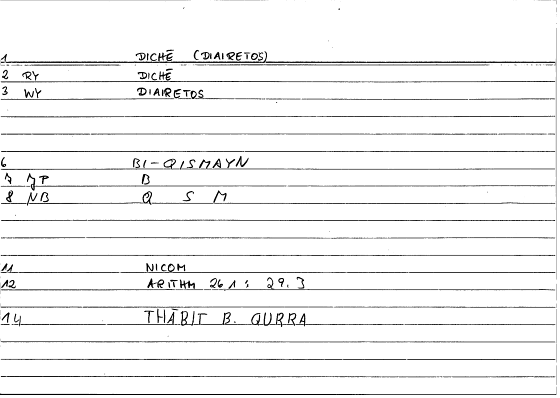 1 DICHĒ (DIAIRETOS)
2 RY DICHĒ
3 WY DIAIRETOS
6 BI-QISMAYN
7 JP B
8 NB Q S M
11 NICOM
12 ARITHM 26.1 : 29.3
14 THĀBIT B. QURRA